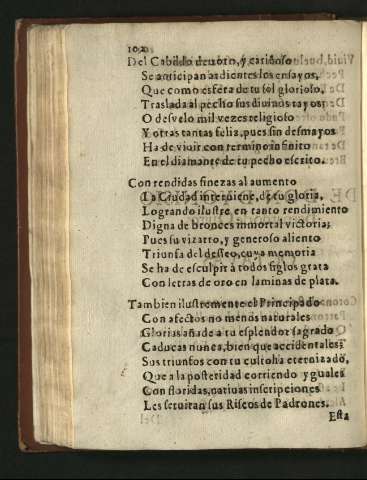 102
Del Cabildo deuoto, y cariñoso
Se anticipan ardientes los ensayos,
Que como esfera de tu sol glorioso,
Traslada al pecho sus diuinos rayos;
O desvelo mil vezes religioso
Y otras tantas feliz, pues sin desmayos
Ha de viuir con termino infinito
En el diamante de tu pecho escrito.
Con rendidas finezas al aumento
La Ciudad interuiene, de tu gloria,
Logrando ilustre en tanto rendimiento
Digna de bronces inmortal victoria;
Pues su vizarro, y generoso aliento
Triunfa del desseo, cuya memoria
Se ha de esculpir à todos siglos grata
Con letras de oro en laminas de plata.
Tambien ilustremente el Principado
Con afectos no menos naturales
Glorias añade a tu esplendor sagrado
Caducas nunca, bien que accidentales;
Sus triunfos con tu culto ha eternizado,
Que a la posteridad corriendo yguales
Con floridas, natiuas inscripciones
Les seruiran sus Riscos de Padrones.
Esta